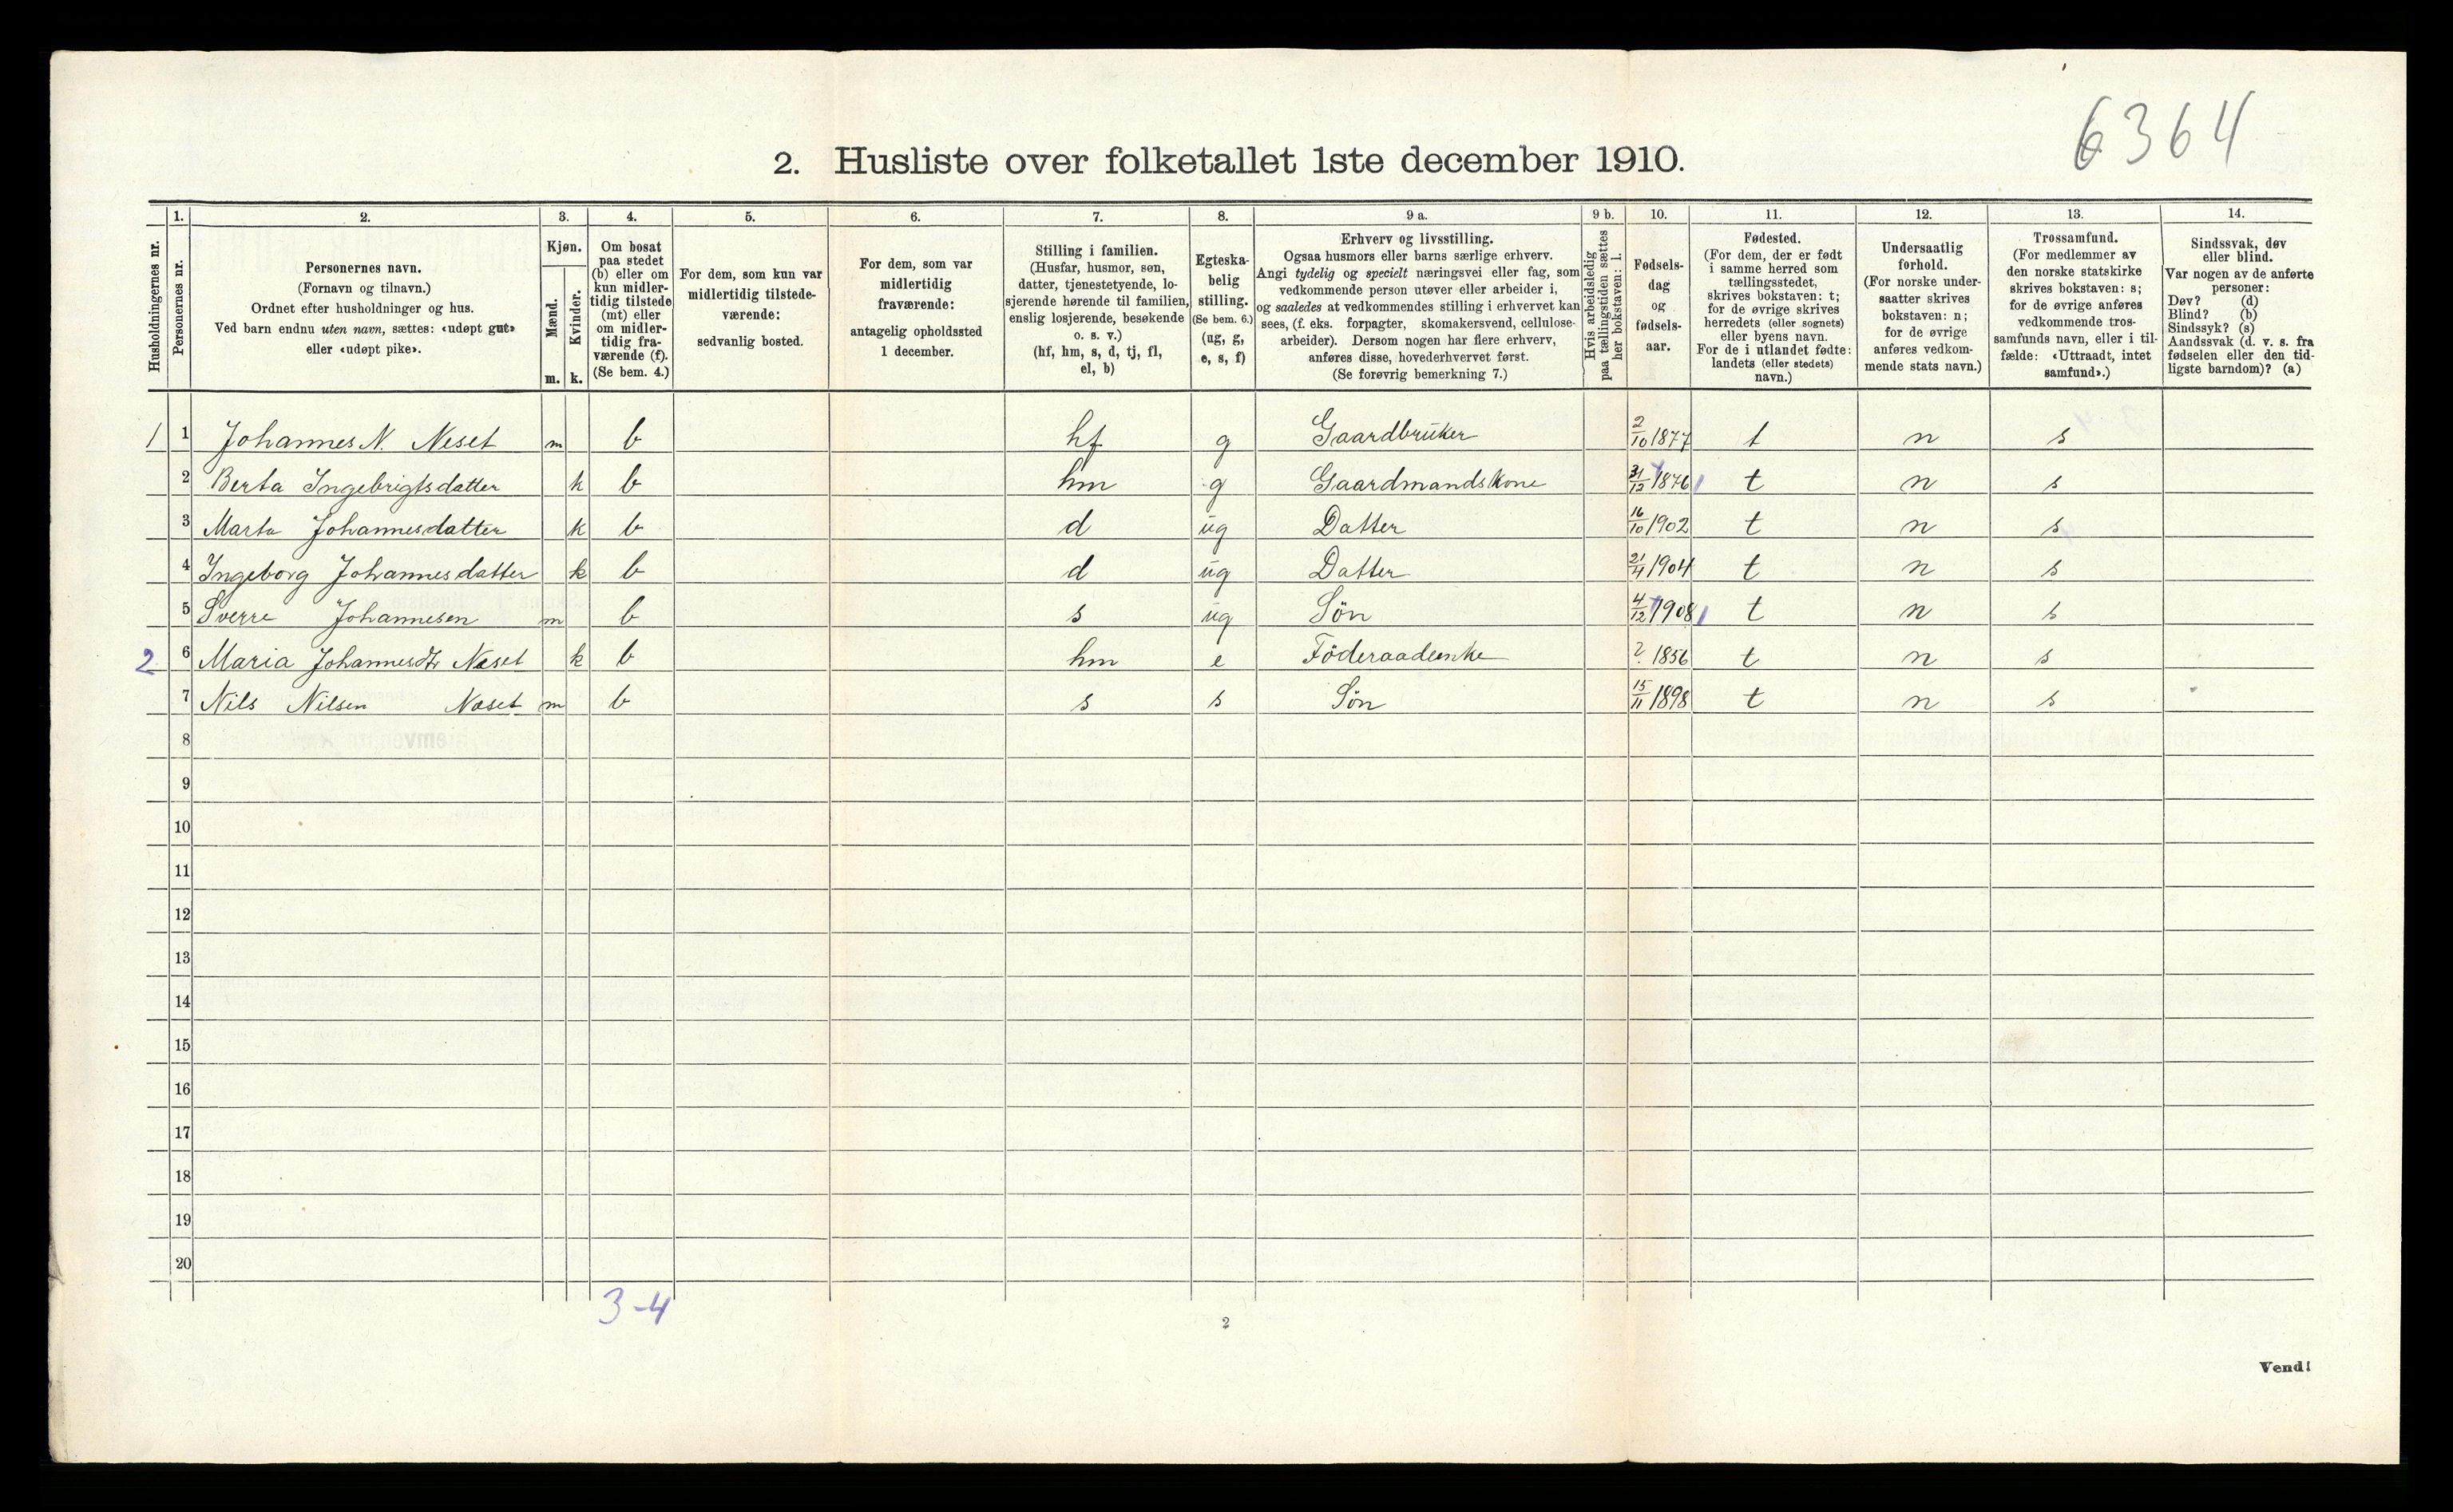 6364
2. Husliste over folketallet 1ste december 1910.
Husholdningernes nr.
1.
Personernes nr.
2.
Personernes navn.
(Fornavn og tilnavn.)
Ordnet efter husholdninger og hus.
Ved barn endnu uten navn, sættes: «udøpt gut»
eller «udøpt pike».
3.
Kjøn.
Mænd.
m.
Kvinder.
k.
4.
Om bosat
paa stedet
(b) eller om
kun midler-
tidig tilstede
(mt) eller
om midler-
tidig fra-
værende (f).
(Se bem. 4.)
5.
For dem, som kun var
midlertidig tilstede-
værende:
sedvanlig bosted.
6.
For dem, som var
midlertidig
fraværende:
antagelig opholdssted
1 december.
7.
Stilling i familien.
(Husfar, husmor, søn,
datter, tjenestetyende, lo-
sjerende hørende til familien,
enslig losjerende, besøkende
o. s. v.)
(hf, hm, s, d, tj, fl,
el, b)
8.
Egteska-
belig
stilling.
(Se bem. 6.)
(ug, g,
e, s, f)
9 a.
Erhverv og livsstilling.
Ogsaa husmors eller barns særlige erhverv.
Angi tydelig og specielt næringsvei eller fag, som
vedkommende person utøver eller arbeider i,
og saaledes at vedkommendes stilling i erhvervet kan
sees, (f. eks. forpagter, skomakersvend, cellulose-
arbeider). Dersom nogen har flere erhverv,
anføres disse, hovederhvervet først.
(Se forøvrig bemerkning 7.)
9 b.
Hvis arbeidsledig
paa tællingstiden sættes
her bokstaven: l.
10.
Fødsels-
dag
og
fødsels-
aar.
11.
Fødested.
(For dem, der er født
i samme herred som
tællingsstedet,
skrives bokstaven: t;
for de øvrige skrives
herredets (eller sognets)
eller byens navn.
For de i utlandet fødte:
landets (eller stedets)
navn.)
12.
Undersaatlig
forhold.
(For norske under-
saatter skrives
bokstaven: n;
for de øvrige
anføres vedkom-
mende stats navn.)
13.
Trossamfund.
(For medlemmer av
den norske statskirke
skrives bokstaven: s;
for de øvrige anføres
vedkommende tros-
samfunds navn, eller i til-
fælde: «Uttraadt, intet
samfund».)
14.
Sindssvak, døv
eller blind.
Var nogen av de anførte
personer:
Døv? (d)
Blind? (b)
Sindssyk? (s)
Aandssvak (d. v. s. fra
fødselen eller den tid-
ligste barndom)? (a)
1 1 Johannes N. Neset m b hf g Gaardbruker 2/10 1877 t n s
2 Berta Ingebrigtsdatter k b hm g Gaardmandskone 31/12 1876 t n s
3 Marta Johannesdatter k b d ug Datter 16/10 1902 t n s
4 Ingeborg Johannesdatter k b d ug Datter 21/4 1904 t n s
5 Sverre Johannesen m b s ug Søn 4/12 1908 t n s
2 6 Maria Johannesdtr Næset k b hm e Föderaadenke ? 1856 t n s
7 Nils Nilsen Næset m b s s Søn 15/11 1898 t n s
8
9
10
11
12
13
14
15
16
17
18
19
20
3-4
2
Vend!